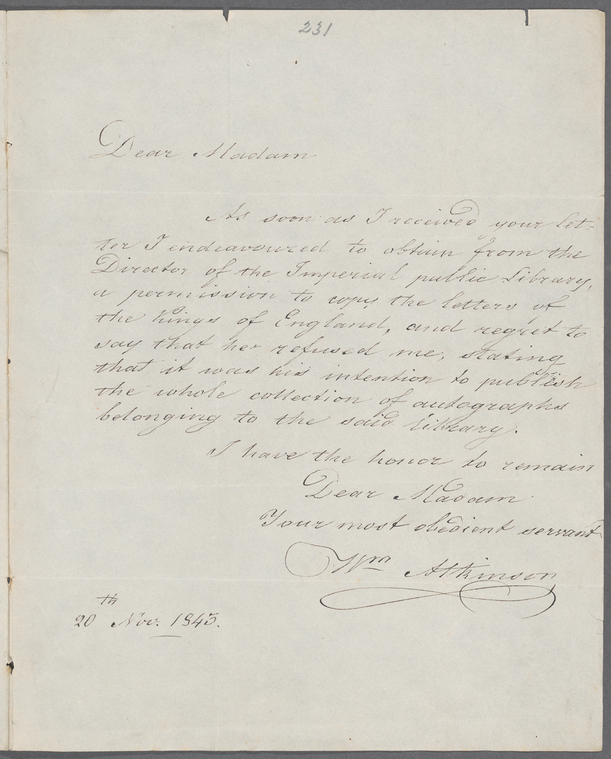 231
Dear Madam
As soon as I received your let-
ter I endeavoured to obtain from the
Director of the Imperial public Library,
a permission to copy the letters of
the Kings of England, and regret to
say that he refused me, stating
that it was his intention to publish
the whole collection of autographs
belonging to the said library.
I have the honor to remain
Dear Madam
Your most obedient servant
Wm Atkinson
20th Nov. 1843.